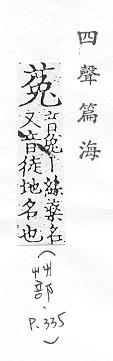 四聲篇海
菟
音兔丨絲藥名
又音徒地名也
(艸部、P.335)